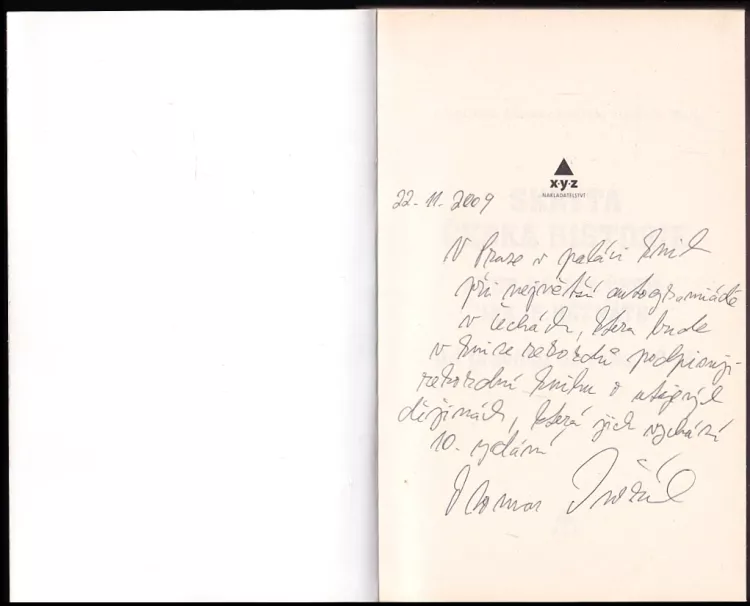 x·y·z
NAKLADATELSTVÍ
22. 11. 2009
V Praze v paláci knih
při největší autogramiádě
v Čechách, která bude
v knize rekordů podpisuji
rekordní knihu o utajených
dějinách, která jich vychází
10. vydání
Otomar Dvořák